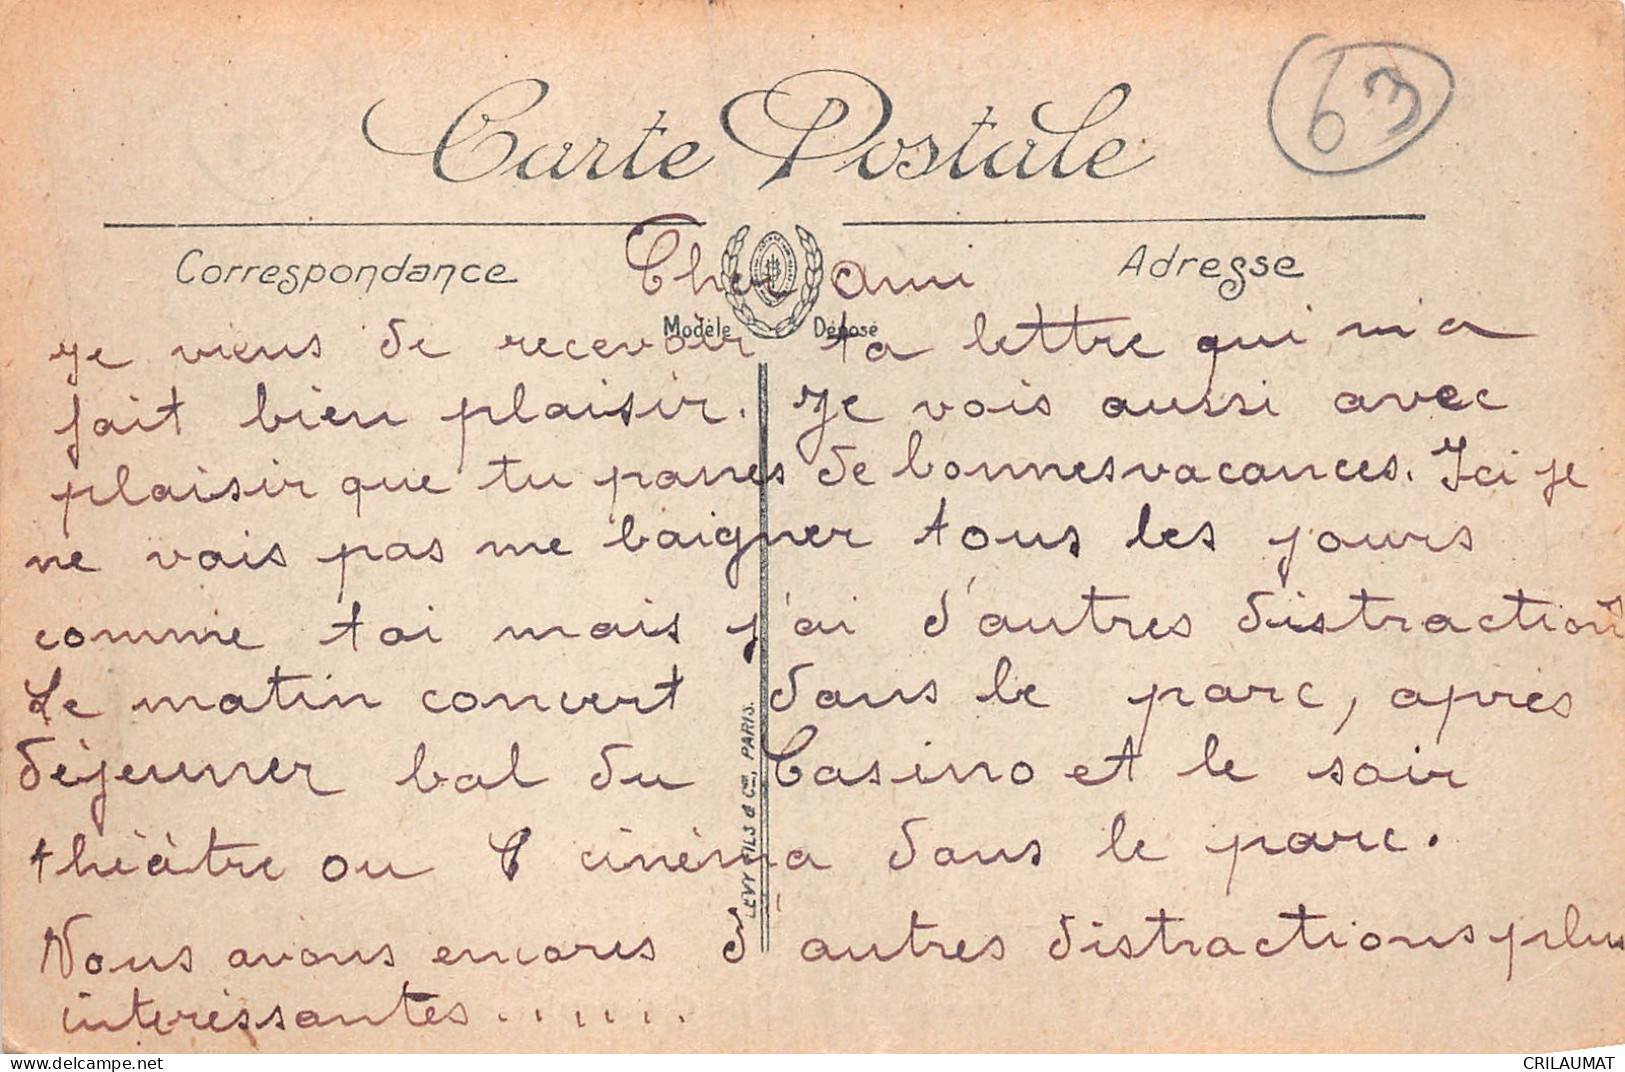 63
Carte Postale
Correspondance
Adresse
Cher Ami
Modèle Déposé
Je viens de recevoir ta lettre qui m'a
fait bien plaisir. Je vois aussi avec
plaisir que tu passes de bonnes vacances. Ici je
ne vais pas me baigner tous les jours
comme toi mais j'ai d'autres distractions
Le matin concert dans le parc, après
déjeuner bal du Casino et le soir
théâtre ou C cinéma dans le parc.
Nous avons encores d'autres distractions plus
interessantes......
LEVY FILS & Cie, PARIS.
delcampe.net
CRILAUMAT